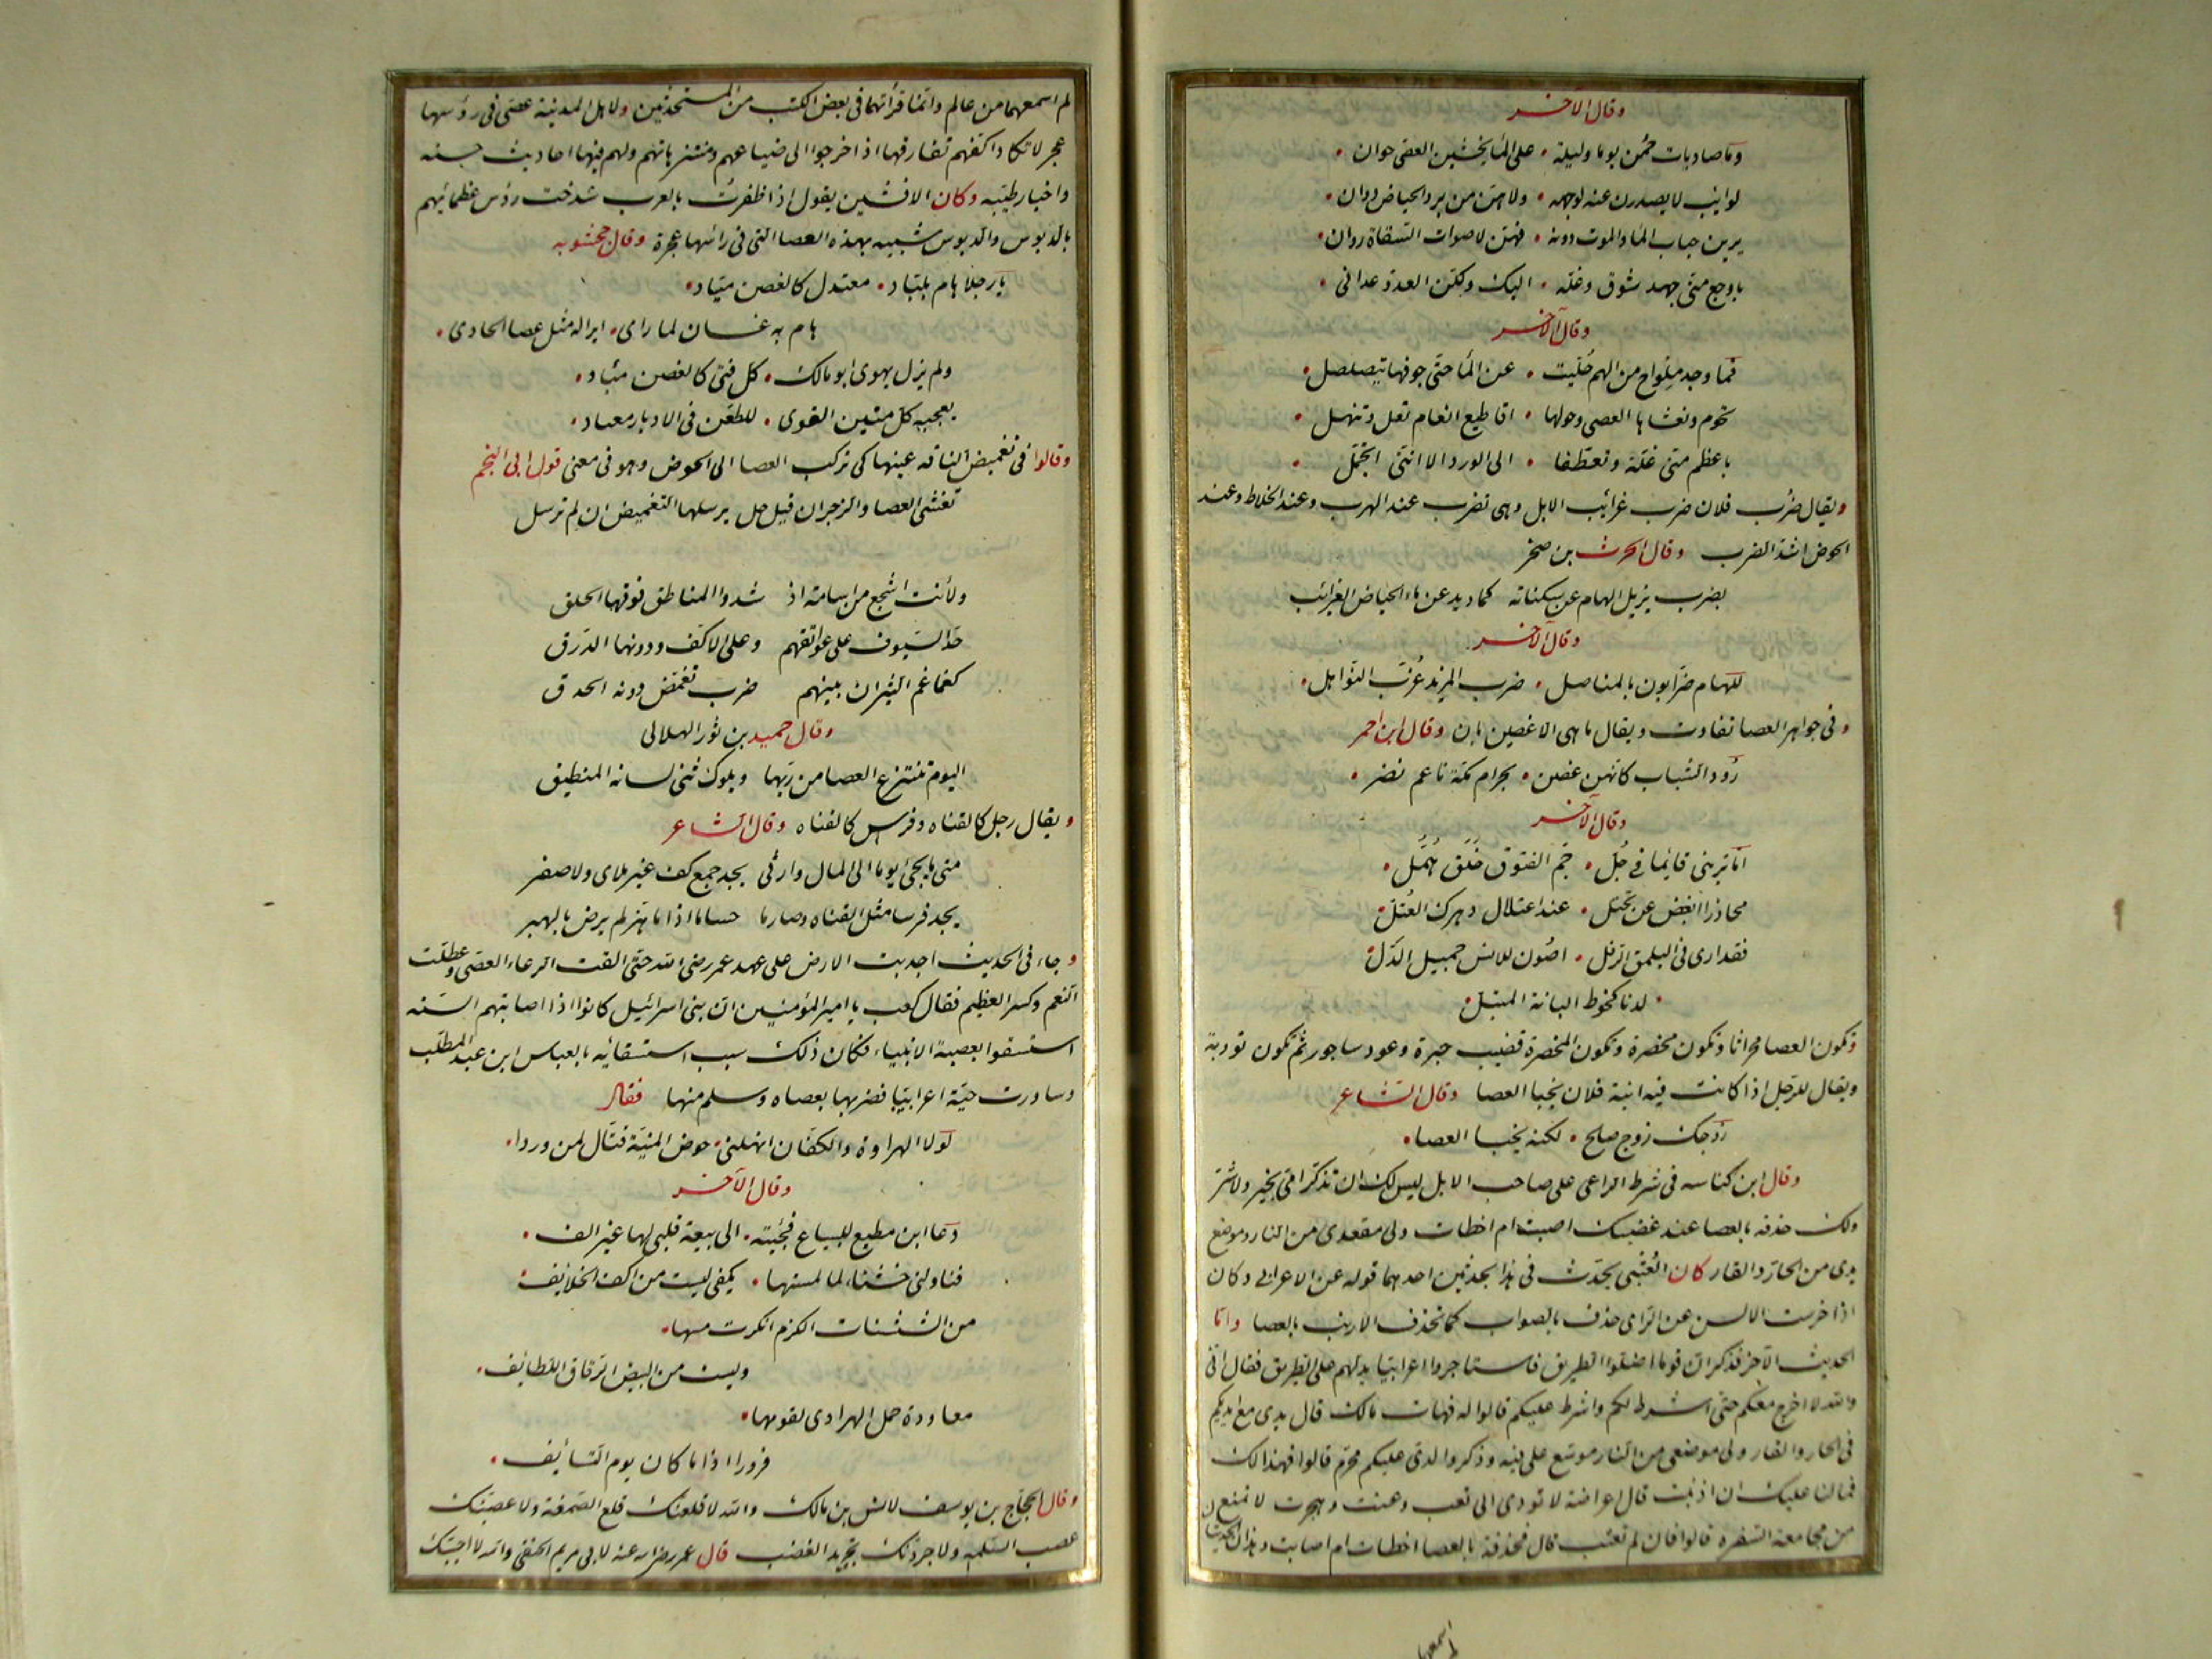 وقال الآخر
وما صاديات حمن يوما وليلة • على الماء يخشين العصى حوان •
لوايب لا يصدرن عنه لوجهه • ولا هن من برد الحياض دوان •
يرين حباب الماء والموت دونه • فهن لاصوات السقاة روان •
باوجع منى جهد شوق وغلة • اليك ولكن العدو عدانى •
وقال الآخر
فما وجد ملواح من الهيم حليت • عن الماء حتى جوفها يتصلصل •
تحوم وتغشاها العصى وحولها • اقاطيع انعام تعل وتنهل •
باعظم منى غلة وتعطفا • الى الورد الا اننى اتجمل •
ويقال ضرب فلان ضرب غرائب الابل وهى تضرب عند الهرب وعند الخلاط وعند
الحوض اشد الضرب وقال الحرث بن صخر
بضرب يزيل الهام عن سكناته كما ذيد عن ماء الحياض الغرائب
وقال الآخر
للهام ضرابون بالمناصل • ضرب المزيد غرب النواهل •
وفى جواهر العصا تفاوت ويقال ما هى الا غصين بان وقال ابن احمر
رود الشباب كانهن غصن • بحرام مكة ناعم نضر •
وقال الآخر
اما ترينى قايما فى جل • جم الفتوق خلق همل •
محاذرا ابغض عن تختل • عند اعتلال دهرك المعتل •
فقد ارى فى اليلمق الرفل • اصون للانس جميل الدل •
• لدنا كخوط البانة المبتل •
وتكون العصا محراثا وتكون مخصرة وتكون المخصرة قضيب حبرة وعود ساجور ثم تكون تودية
ويقال للرجل اذا كانت فيه ابنة فلان يخبا العصا وقال الشاعر
زوجك زوج صلح • لكنه يخبا العصا •
وقال ابن كناسه فى شرط الراعى على صاحب الابل ليس لك ان تذكر امى بخير ولا شر
ولك حذفه بالعصا عند غضبك اصبت ام اخطات ولى مقعدى من النار وموضع
يدى من الحار والقار كان العتبى يحدث فى هذا بحديثين احدهما قوله عن الاعرابى وكان
اذا خرست الالسن عن الراى حذف بالصواب كما تحذف الارنب بالعصا واما
الحديث الآخر فذكر ان قوما اضلوا الطريق فاستاجروا اعرابيا يدلهم على الطريق فقال انى
والله لا اخرج معكم حتى اشرط لكم واشرط عليكم قالوا له فهات مالك قال يدى مع ايديكم
فى الحار والقار ولى موضعى من النار موسع على فيه وذكر والدى عليكم محرم قالوا فهذا لك
فما لنا عليك ان اذنبت قال اعراضة لا تودى الى تعب وعنت وهجرة لا تمنع
من مجامعة السفره قالوا فان لم تعتب قال فحذفة بالعصا اخطات ام اصابت وهذان الحديثان
اسمعها
لم اسمعهما من عالم وانما قراتهما فى بعض الكتب من المستحدثين ولاهل المدنية عصى فى روسها
عجر لا تكاد اكفهم تفارقها اذا خرجوا الى ضياعهم ومتنزهاتهم ولهم فيها احاديث حسنه
واخبار طيبه وكان الافشين يقول اذا ظفرت بالعرب شدخت رؤس عظمائهم
بالدبوس والدبوس شبيه بهذه العصا التى فى راسها عجرة وقال جحشويه
يا رجلا هام بلباد • معتدل كالغصن مياد •
هام به غسان لما راى • ايرا له مثل عصا الحادى •
ولم يزل يهوى ابو مالك • كل فتى كالغصن مياد •
يعجبه كل متين القوى • للطعن فى الادبار معتاد •
وقالوا فى تغميض الناقه عينها كى تركب العصا الى الحوض وهو فى معنى قول ابى النجم
تغشى العصا والزجر ان قيل حل يرسلها التغميض ان لم ترسل
ولأنت اشجع من اسامة اذ شدوا المناطق فوقها الحلق
حد السيوف على عواتقهم وعلى الاكف ودونها الدرق
كغماغم الثيران بينهم ضرب تغمض دونه الحدق
وقال حميد بن ثور الهلالى
اليوم تنتزع العصا من ربها ويلوك ثنى لسانه المنطيق
ويقال رجل كالقناه وفرس كالقناه وقال الشاعر
متى ما يجئ يوما الى المال وارثى يجد جمع كف غير ملاى ولا صفر
يجد فرسا مثل القناه وصارما حساما اذا ما هز لم يرض بالهبر
وجاء فى الحديث اجدبت الارض على عهد عمر رضى الله حتى القت الرعاء العصى وعطلت
النعم وكسر العظيم فقال كعب يا امير المؤمنين ان بنى اسرائيل كانوا اذا اصابتهم السنه
استسقوا بعصبة الانبياء فكان ذلك سبب استسقائه بالعباس ابن عبد المطلب
وساورت حية اعرابيا فضربها بعصاه وسلم منها فقال
لولا الهراوة والكفان انهلنى • حوض المنية قتال لمن وردا •
وقال الآخر
دعا ابن مطيع للبياع فجئته • الى بيعة قلبى لها غير الف •
فناولنى خشناء لما لمستها • بكفى ليست من اكف الخلائف •
من الشثنات الكزم انكرت مسها •
وليست من البيض الرقاق اللطائف •
معاودة حمل الهراوى لقومها •
فرورا اذا ما كان يوم التسايف •
وقال الحجاج بن يوسف لانس بن مالك والله لاقلعنك قلع الصمغة ولاعصبنك
عصب السلمه ولاجردنك تجريد الضب قال عمر رضى الله عنه لابى مريم الحنفى والله لا احبك